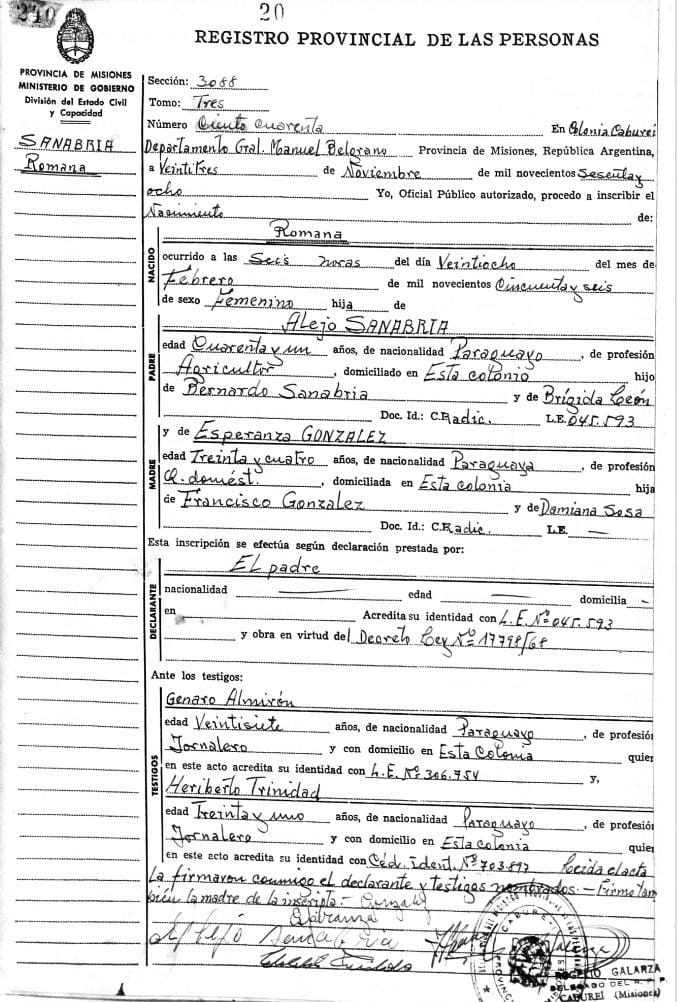 240
20
REGISTRO PROVINCIAL DE LAS PERSONAS
PROVINCIA DE MISIONES
MINISTERIO DE GOBIERNO
División del Estado Civil
y Capacidad
SANABRIA
Romana
Sección: 3088
Tomo: Tres
Número Ciento Cuarenta En Colonia Caburei
Departamento Gral. Manuel Belgrano Provincia de Misiones, República Argentina,
a Veintitres de Noviembre de mil novecientos Sesenta y
ocho Yo, Oficial Público autorizado, procedo a inscribir el
Nacimiento de:
NACIDO
Romana
ocurrido a las Seis horas del día Veintiocho del mes de
Febrero de mil novecientos Cincuenta y seis
de sexo Femenino hija de
PADRE
Alejo SANABRIA
edad Cuarenta y un años, de nacionalidad Paraguayo, de profesión
Agricultor, domiciliado en Esta colonia hijo
de Bernardo Sanabria y de Brígida León
Doc. Id.: C. Radic. L.E. 045.593
MADRE
y de Esperanza GONZALEZ
edad Treinta y cuatro años, de nacionalidad Paraguaya, de profesión
Q. domést., domiciliada en Esta colonia hija
de Francisco Gonzalez y de Damiana Sosa
Doc. Id.: C. Radic. L.E. —
Esta inscripción se efectúa según declaración prestada por:
DECLARANTE
El padre
nacionalidad — edad — domicilia —
en Acredita su identidad con L.E. Nº 045.593
y obra en virtud del Decreto Ley Nº 17798/68
Ante los testigos:
TESTIGOS
Genaro Almirón
edad Veintisiete años, de nacionalidad Paraguayo, de profesión
Jornalero y con domicilio en Esta Colonia quien
en este acto acredita su identidad con L.E. Nº 306.754 y,
Heriberto Trinidad
edad Treinta y uno años, de nacionalidad Paraguayo, de profesión
Jornalero y con domicilio en Esta colonia quien
en este acto acredita su identidad con Céd. Ident. Nº 703.897 Leída el acta
La firmaron conmigo el declarante y testigos nombrados.- Firma tam
bién la madre de la inscripta.-
Alejo Sanabria
CABUREI
ROGELIO GALARZA
DELEGADO DEL R. P. P.
CABUREI (Misiones)